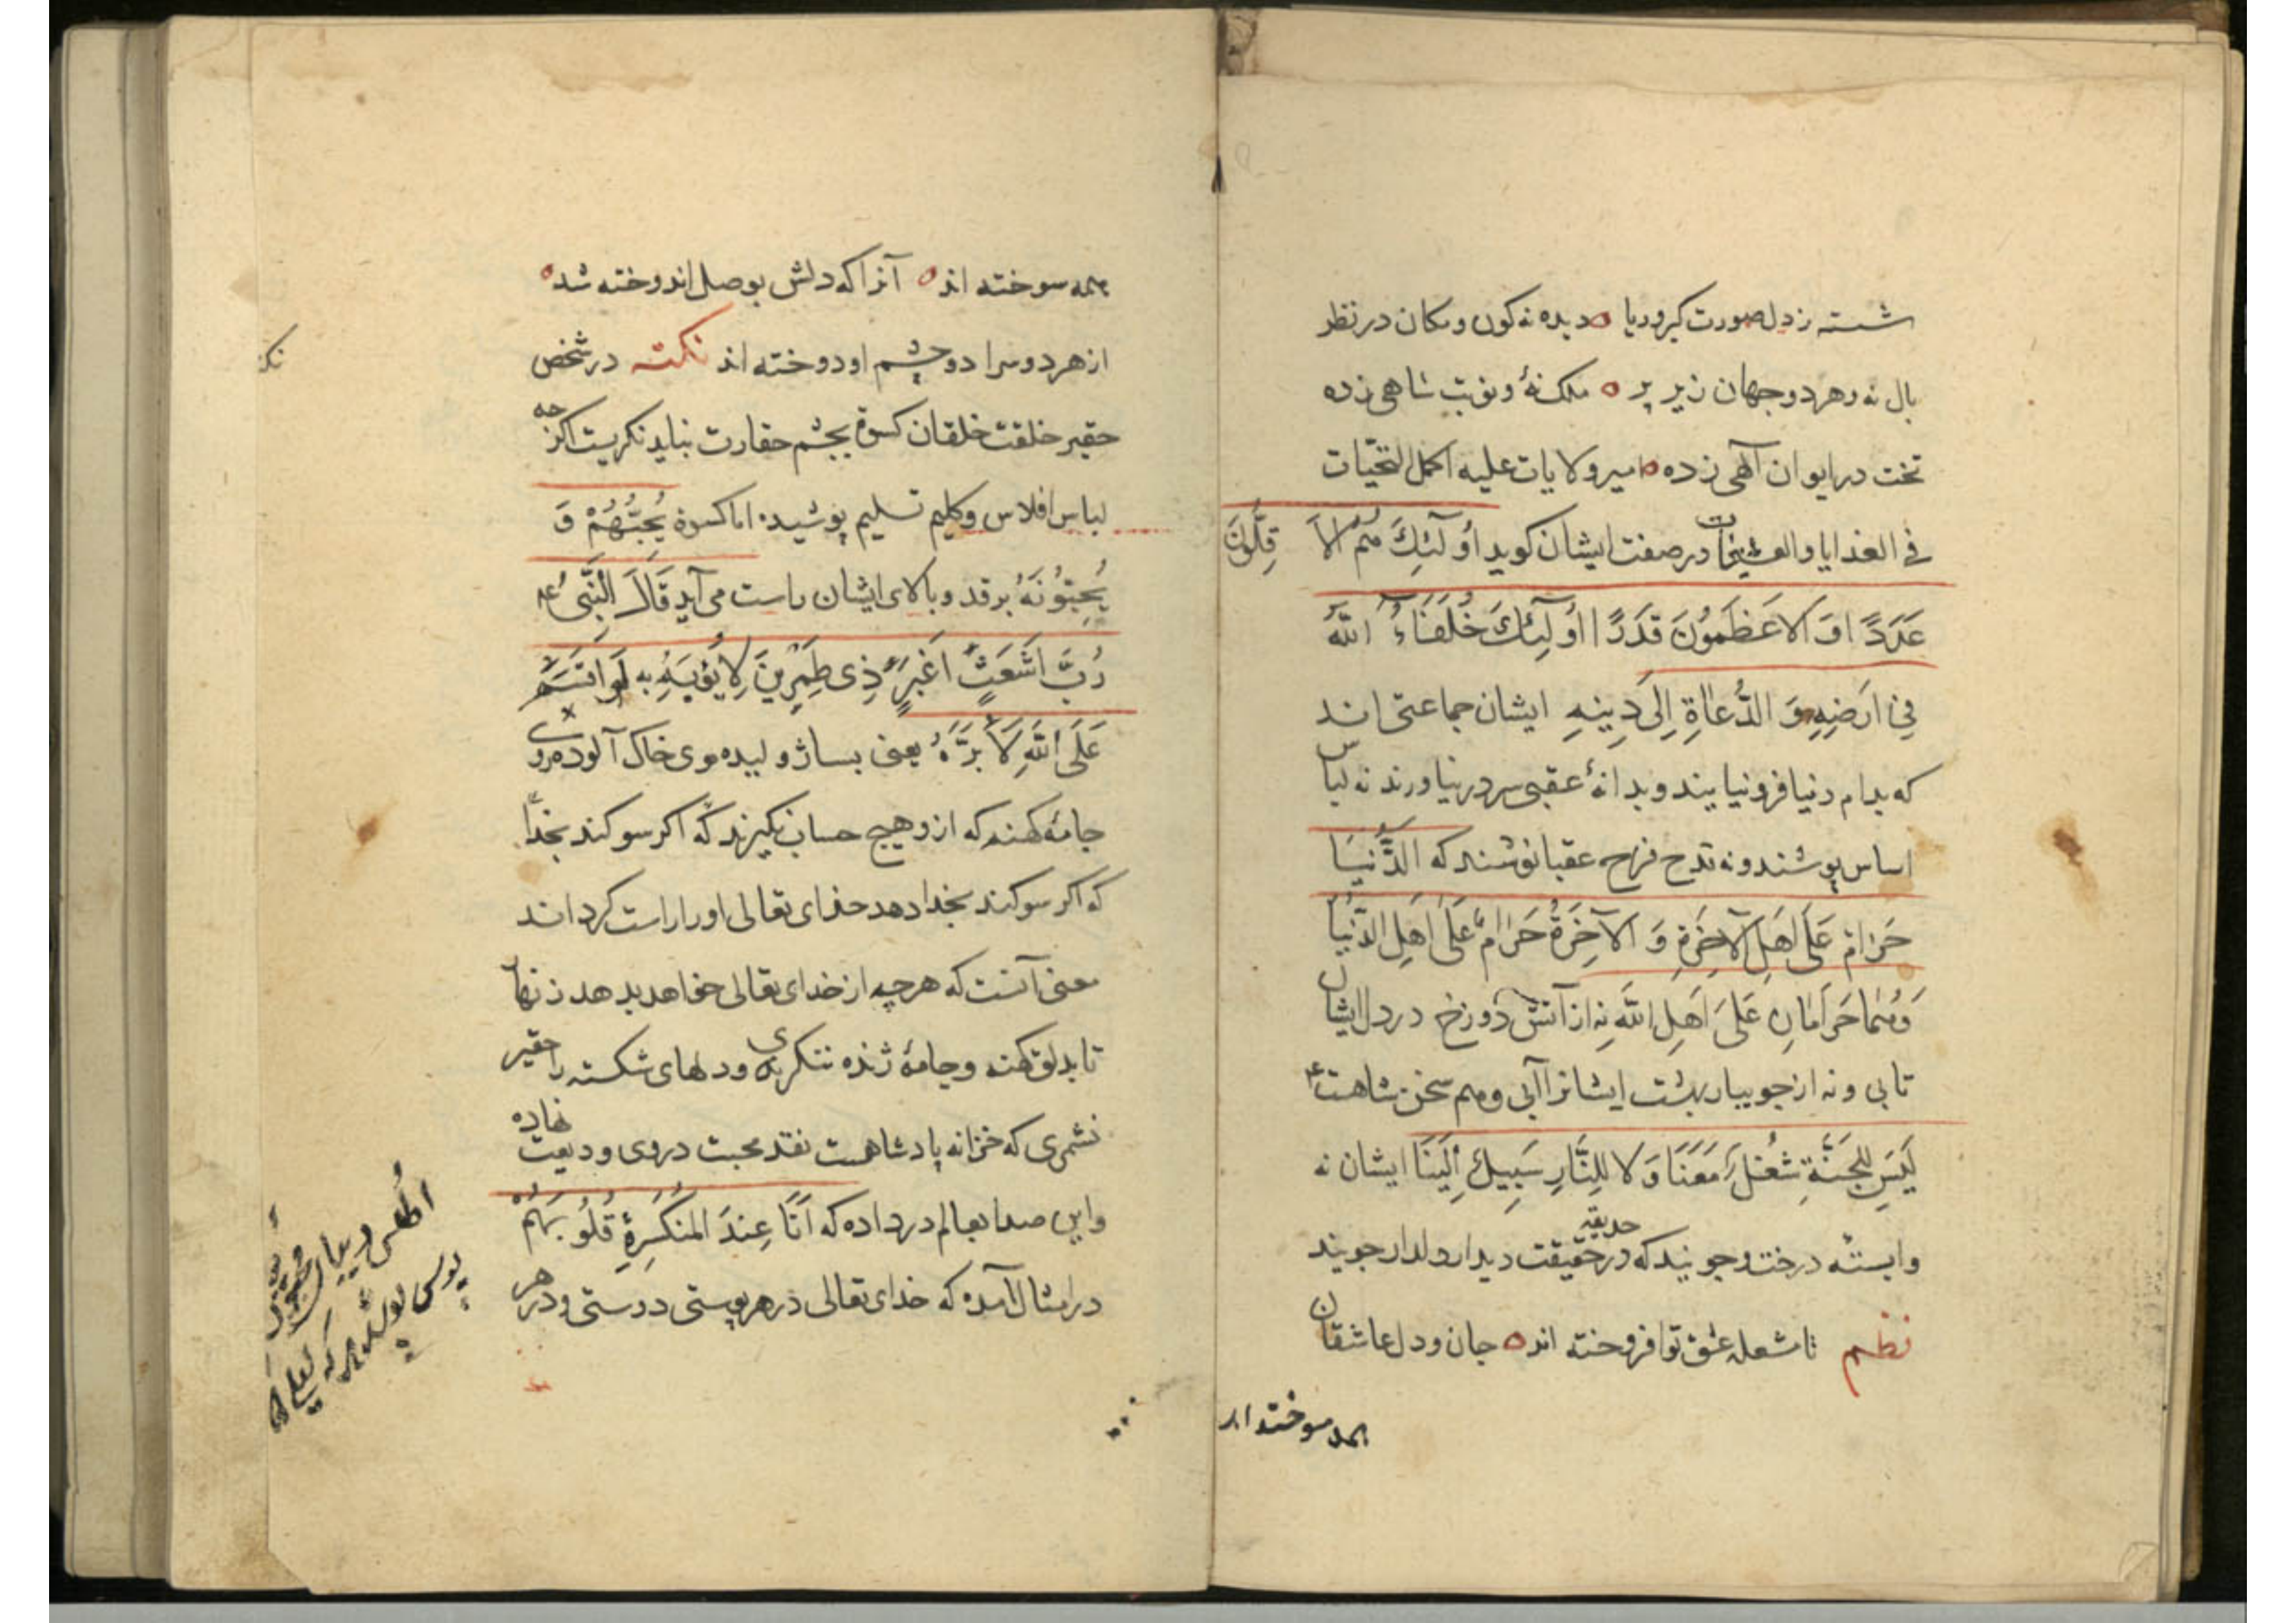 شسته ز دل صورت کبر و ریا ه دیده نه کون و مکان در نظر
بال نه و هر دو جهان زیر پر ه ملک نهٔ و نوبت شاهی زده
تخت در ایوان آلهی زده ه امیر ولایات علیه اکمل التحیّات
فی الغدایا والعشیات در صفت ایشان کوید اُولَئِكَ هُمُ الاَ قِلُّونَ
عَدَدًا وَ الاَعْظَمُونَ قَدَرًا اُولَئِكَ خُلَفَاءُ اللّٰهِ
فِی اَرْضِهِ وَ الدُّعَاةِ اِلَی دِینِهِ ایشان جماعتی اند
که بدام دنیا فرو نیایند و بدانهٔ عقبی سر در نیاورند نه لباس
اساس پوشند و نه قدح فرح عقبا نوشند که الدُّنْیَا
حَرَامٌ عَلَی اَهْلِ الآخِرَةِ وَ الآخِرَةُ حَرَامٌ عَلَی اَهْلِ الدُّنْیَا
وَهُمَا حَرَامَانِ عَلَی اَهْلِ اللّٰهِ نه از آتش دوزخ در دل ایشان
تابی و نه از جویبار بهشت ایشانرا آبی و هم سخن شاهست
لَیْسَ لِلجَنَّةِ شُغْلٌ مَعَنَا وَلا لِلنَّارِ سَبِیلٌ اِلَیْنَا ایشان نه
وابستهٔ درخت و جویند که در حدیقهٔ حقیقت دیدار دلدار جویند
نظم تا شعلهٔ عشق تو افروخته اند ه جان و دل عاشقان
همه سوخته اند
همه سوخته اند ه آنرا که دلش بوصل اندوخته شد ه
از هر دو سرا دو چشم او دوخته اند نکته در شخص
حقیر خلقت خلقان کسوة بچشم حقارت نباید نکریست اکرچه
لباس افلاس و کلیم تسلیم پوشیده اما کسوة یُحِبُّهُمْ وَ
یُحِبُّونَهُ بر قد و بالای ایشان راست می آید قَالَ النَّبِیُّ عم
رُبَّ اَشْعَثَ اَغْبَرَ ذِی طِمْرَیْنِ لا یُؤْبَهُ به لَو اَقْسَمَ
عَلَی اللّٰهِ لَاَبَرَّهُ یعنی بسا ژولیده موی خاک آلوده روی
جامهٔ کهنه که ازو هیچ حساب نکیرند که اکر سوکند بخدا
که اکر سوکند بخدا دهد خدای تعالی او را راست کرداند
معنی آنست که هر چه از خدای تعالی خواهد بدهد زنهار
تا بدلق کهنه و جامهٔ ژنده ننکری و دلهای شکسته را حقیر
نشمری که خزانه پادشاهست نقد محبت در وی ودیعت نهاده
و این صدا بعالم در داده که اَنَا عِندَ المُنکَسِرَةِ قُلُوبُهُمْ
در امثال آمده که خدای تعالی در هر پوستی دوستی و در هر